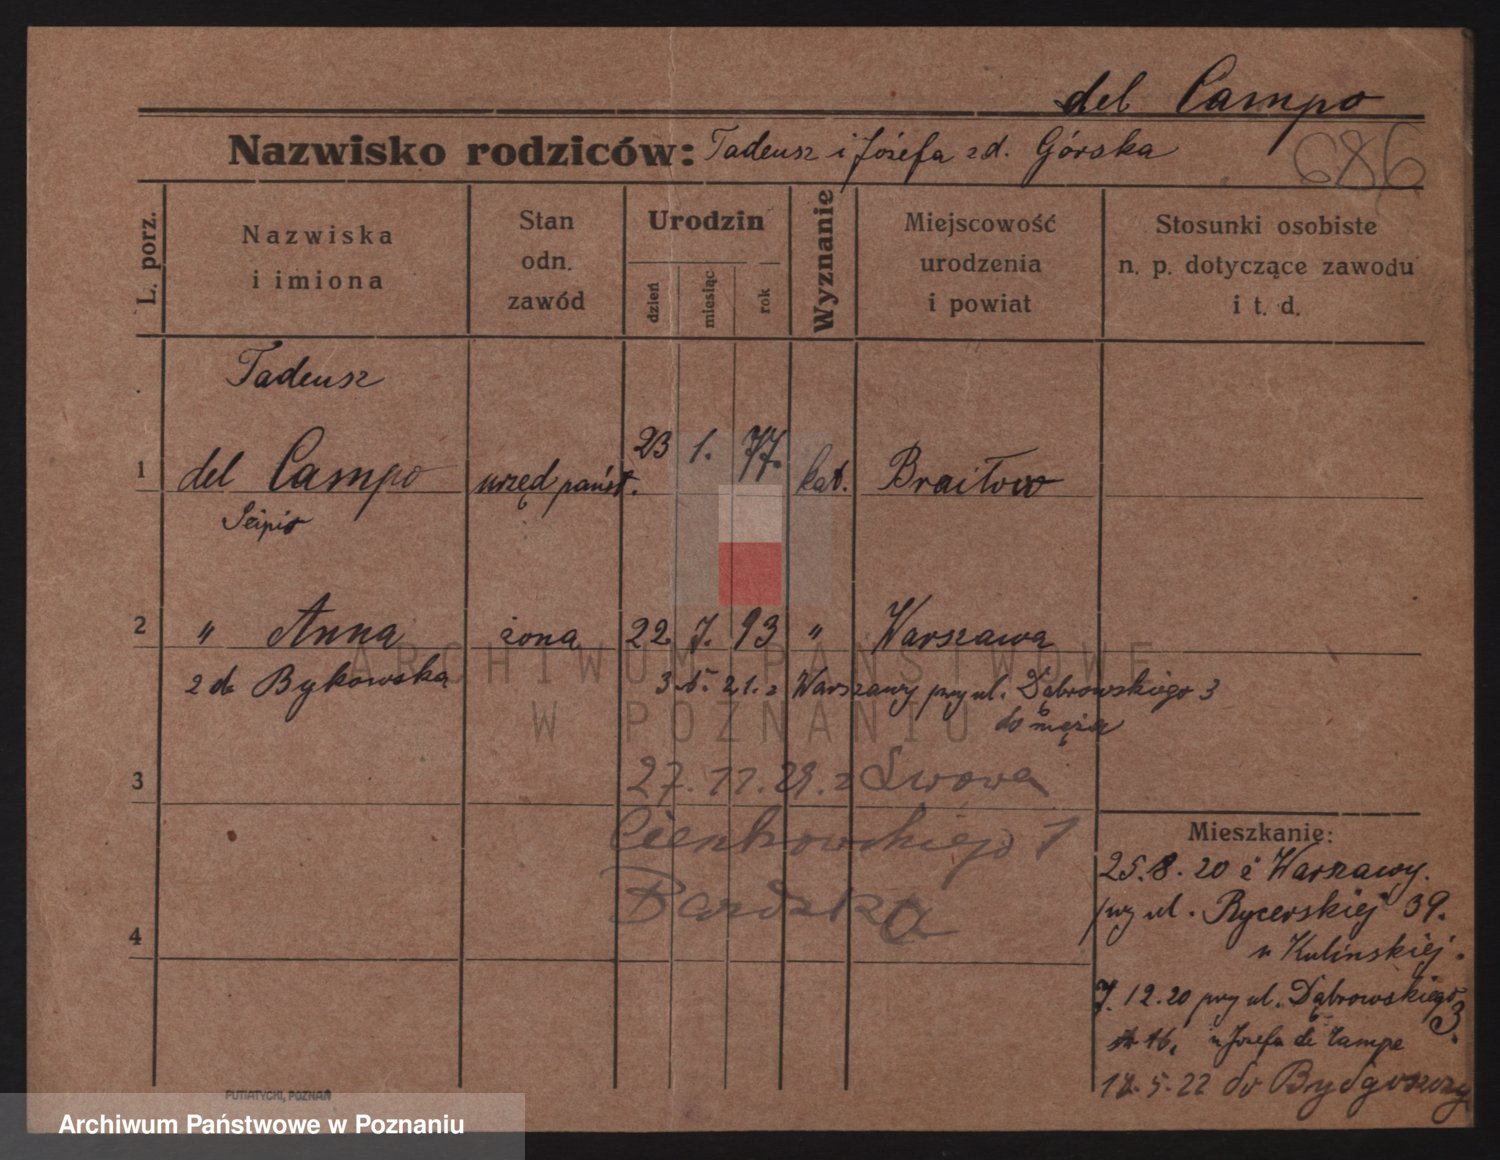 del Campo
Nazwisko rodziców: Tadeusz i Józefa zd. Górska
686
L. porz.
Nazwiska
i imiona
Stan
odn.
zawód
Urodzin
dzień
miesiąc
rok
Wyznanie
Miejscowość
urodzenia
i powiat
Stosunki osobiste
n. p. dotyczące zawodu
i t. d.
Tadeusz
1 del Campo urzęd państ. 23 1. 77. kat. Braiłow
Scipio
2 " Anna żona 22 7. 93 " Warszawa
z d. Bykowska 3 5. 21. z Warszawy przy ul. Dąbrowskiego 3
do męża
3 27. 11. 29. z Lwowa
Cienkowskiego 1
4
Mieszkanie:
25. 8. 20 z Warszawy.
przy ul. Rycerskiej 39.
u Kulińskiej.
7. 12. 20 przy ul. Dąbrowskiego 3.
16, u Józefa de Campo
12. 5. 22 do Bydgoszczy
PUTIATYCKI, POZNAŃ
ARCHIWUM PAŃSTWOWE
W POZNANIU
Archiwum Państwowe w Poznaniu